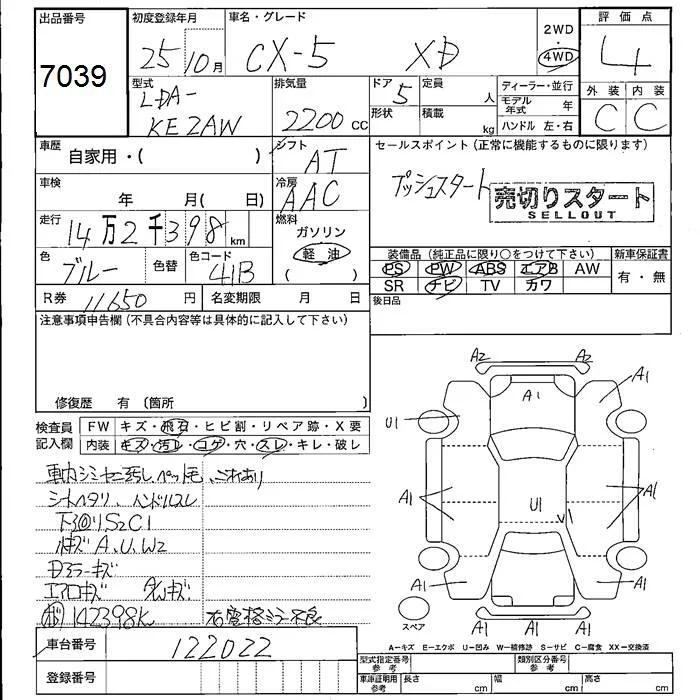 出品番号
7039
初度登録年月
25年10月
車名・グレード
CX-5 XD
2WD
・
4WD
評価点
4
型式
LDA-
KE2AW
排気量
2200 CC
ドア
5
形状
定員
人
積載
kg
ディーラー・並行
モデル年式
年
ハンドル 左・右
外装
C
内装
C
車歴
自家用・( )
シフト
AT
車検
年 月( 日)
冷房
AAC
走行
14万2千398km
燃料
ガソリン
軽油
( )
色
ブルー
色替
色コード
41B
R券
11650円
名変期限 月 日
セールスポイント(正常に機能するものに限ります)
プッシュスタート
売切りスタート
SELLOUT
装備品(純正品に限り○をつけて下さい)
PS PW ABS エアB AW
SR ナビ TV カワ
新車保証書
有・無
後日品
注意事項申告欄(不具合内容等は具体的に記入して下さい)
修復歴 有〔箇所 〕
検査員
記入欄
FW キズ・飛石・ヒビ割・リペア跡・X要
内装 キズ・汚レ・コゲ・穴・スレ・キレ・破レ
シートヘタリ、ハンドルスレ
下回りS2C1
A、U、W2
Dミラーキズ
エアロキズ
142398K
右電格ミラー不良
車台番号
122022
登録番号
A2 A2
A1
A1
U1
A1
A1
U1
A1
A1
A1
A1 A1 A1
スペア
A-キズ E-エクボ U-凹み W-補修跡 S-サビ C-腐食 XX-交換済
型式指定番号
参考
類別区分番号
参考
車庫証明用
参考
長さ cm
幅 cm
高さ cm